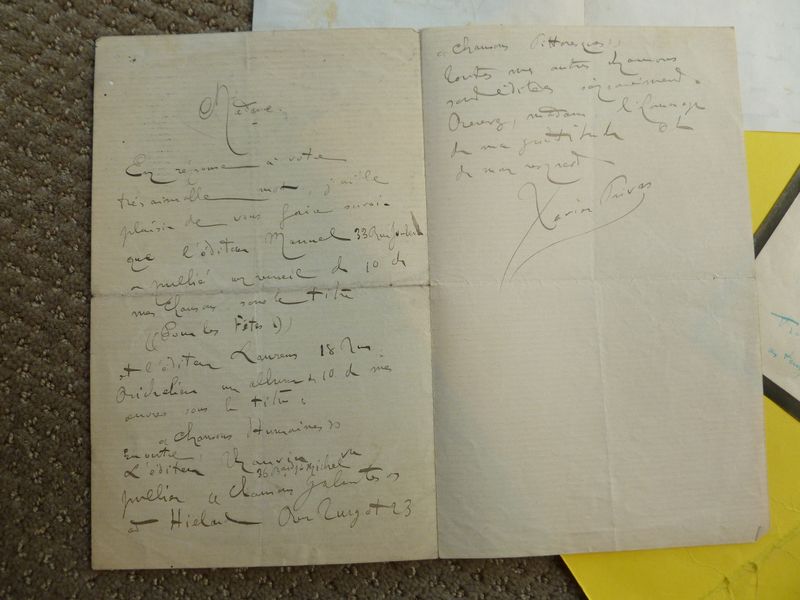 Madame.
En réponse à votre
très aimable mot, j'ai le
plaisir de vous faire savoir
que l'éditeur 33 Rue
a publié un recueil de 10 de
mes chansons sous le titre
"Pour les Fêtes"
et l'éditeur Laurens 18 Rue
Richelieu un album de 10 de mes
œuvres sous le titre :
"Chansons Humaines"
En outre
L'éditeur 36 Michel va
publier "Chansons galantes"
et Hielard Rue Turgot 23
"Chansons Pittoresques"
Toutes mes autres chansons
sont éditées séparément.
Recevez, madame l'hommage
de ma gratitude et
de mon respect
Xavier Privas